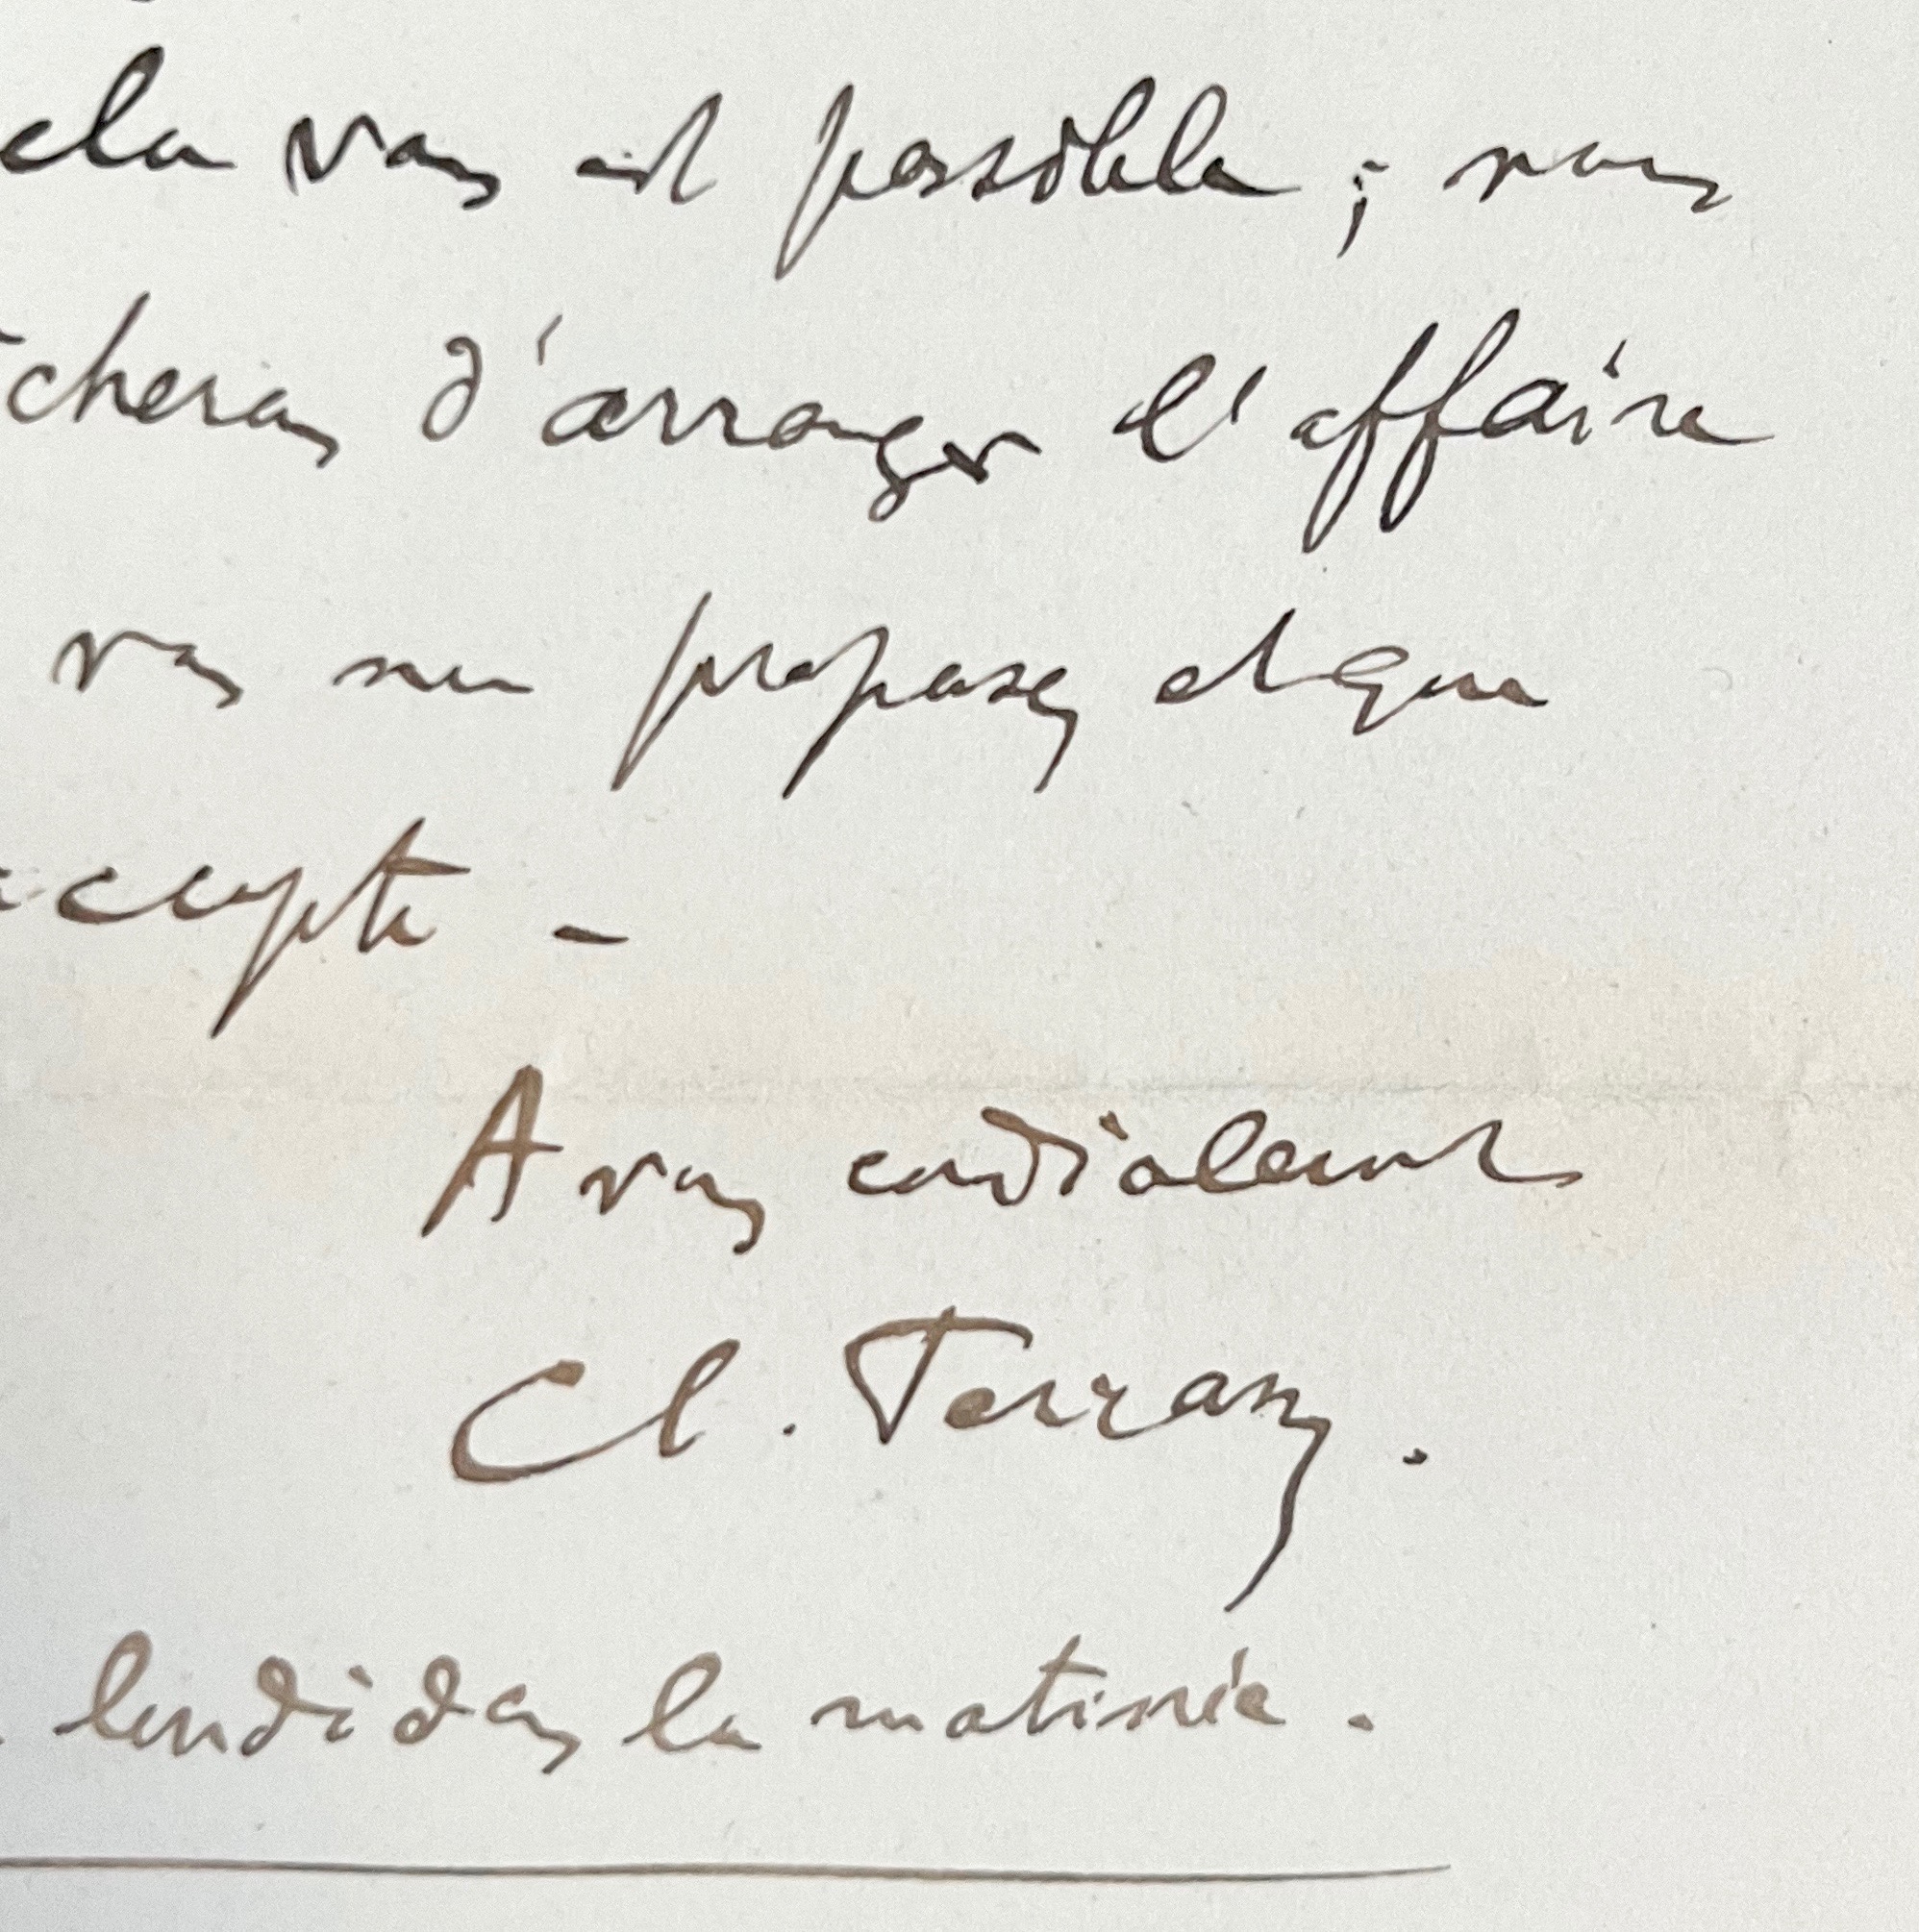 cela vous est possible ; nous
cherons d'arranger l'affaire
vous me proposez et que
accepte -
A vous cordialement
Cl. Terrasse.
lundi dans la matinée.